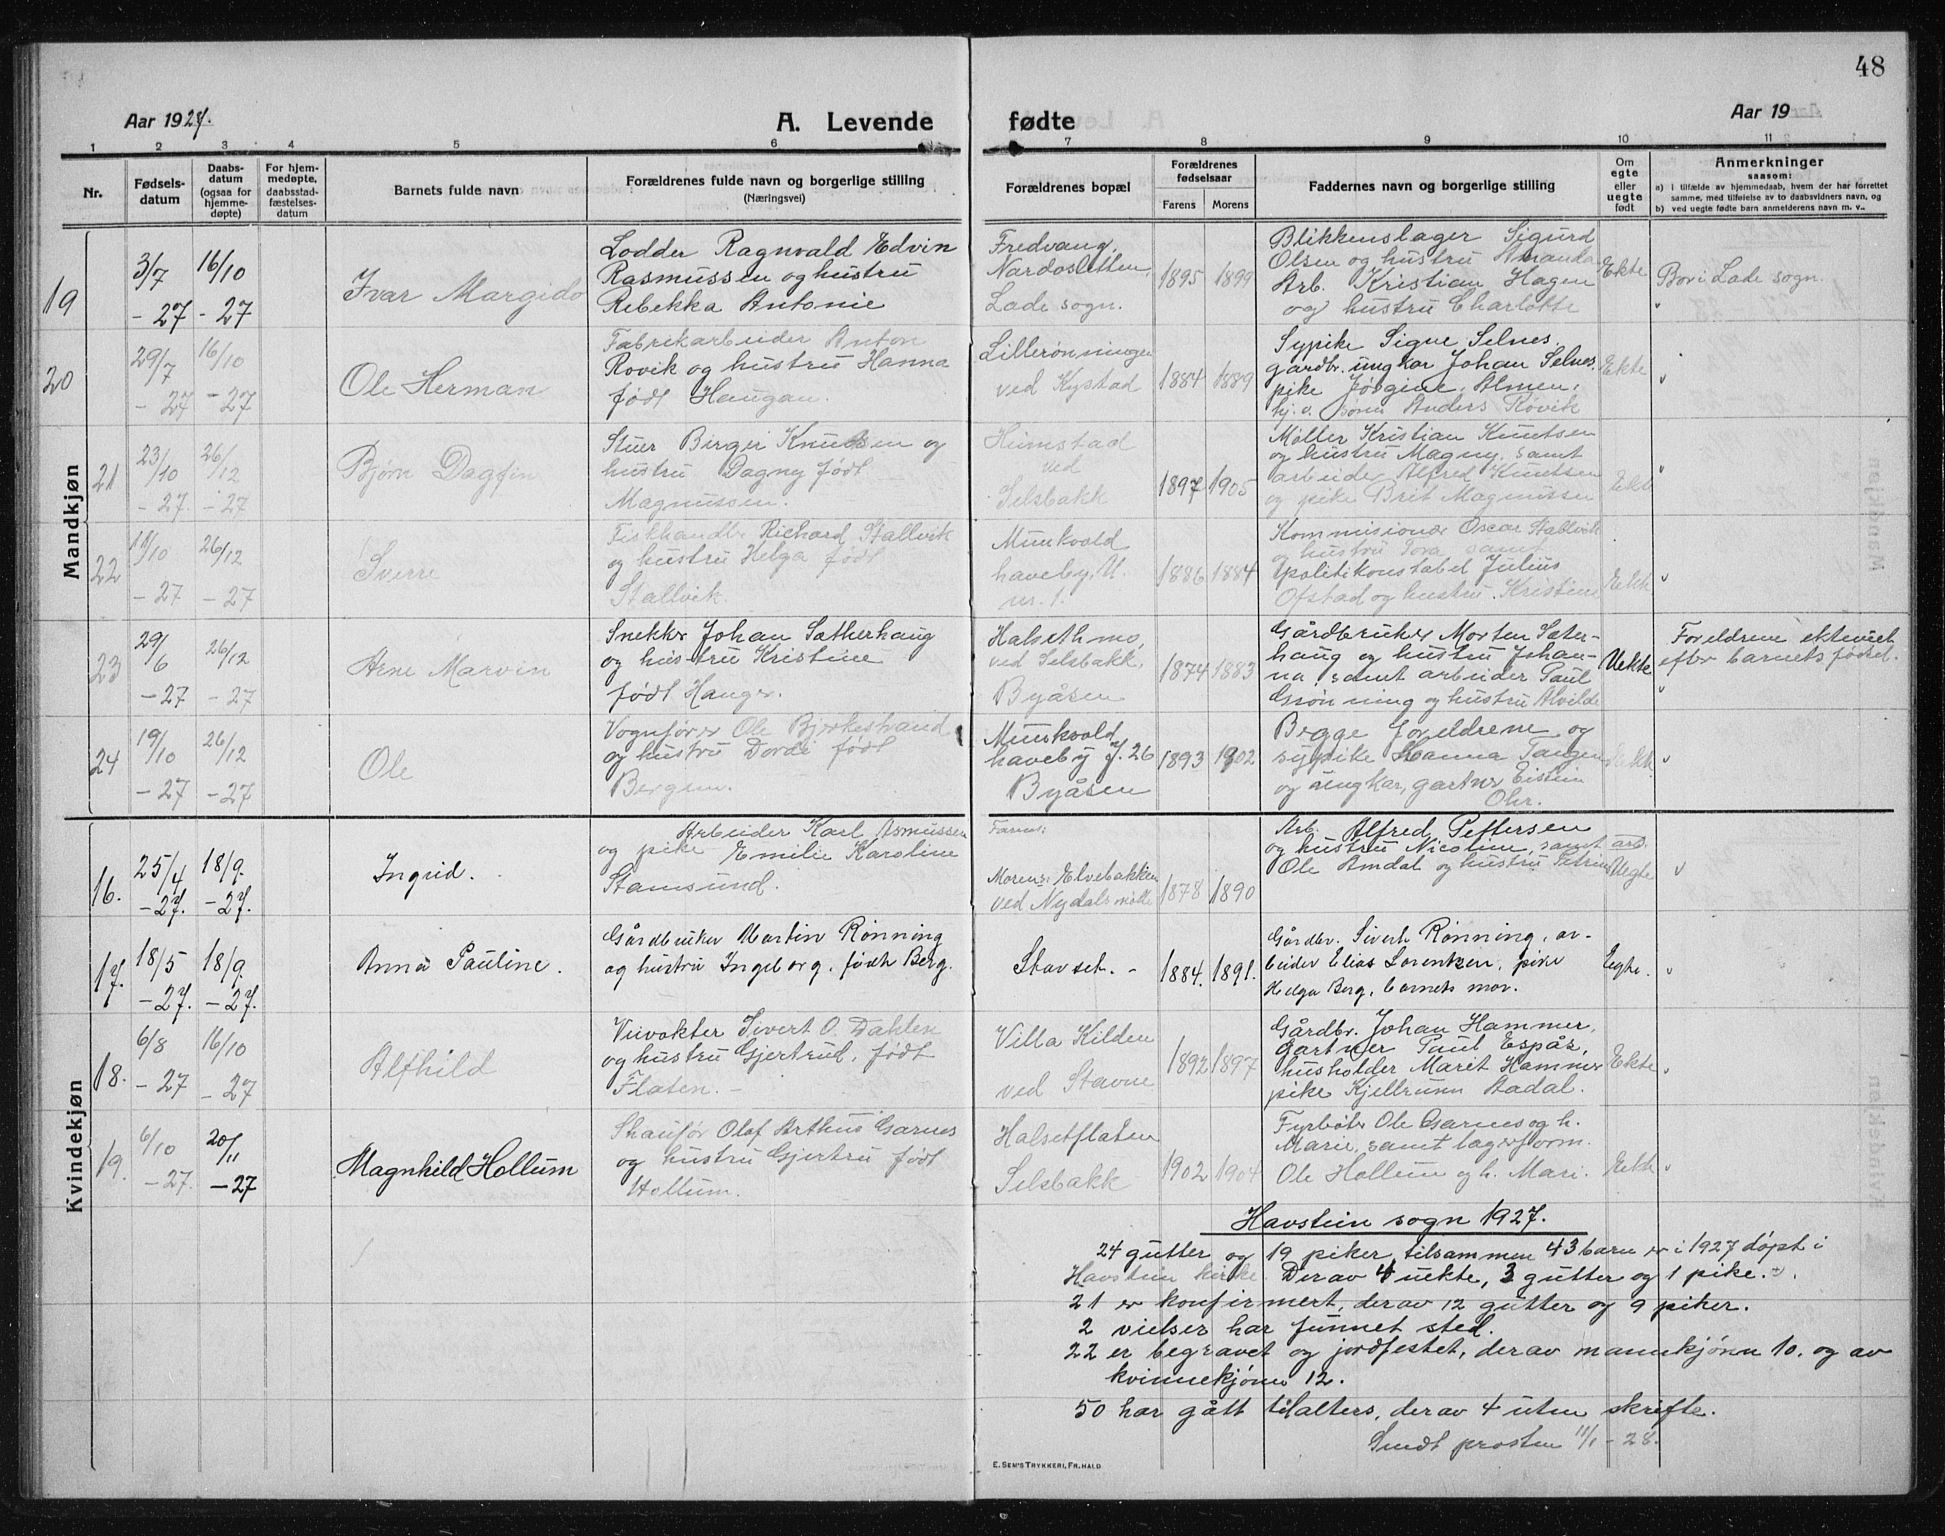 48
Aar 1927.
A. Levende
fødte
Aar 19
1 2 3 4 5 6 7 8 9 10 11
Nr.
Fødsels-
datum
Daabs-
datum
(ogsaa for
hjemme-
døpte)
For hjem-
medøpte,
daabsstad-
fæstelses-
datum
Barnets fulde navn
Forældrenes fulde navn og borgerlige stilling
(Næringsvei)
Forældrenes bopæl
Forældrenes
fødselsaar
Farens
Morens
Faddernes navn og borgerlige stilling
Om
egte
eller
uegte
født
Anmerkninger
saasom:
a) i tilfælde av hjemmedaab, hvem der har forrettet
samme, med tilføielse av to daabsvidners navn, og
b) ved uegte fødte barn anmelderens navn m. v..
Mandkjøn
19
3/7
- 27
16/10
- 27
Ivar Margido
Lodder Ragnvald Edvin
Rasmussen og hustru
Rebekka Antonie
Fredvang,
Nardosletten,
Lade sogn.
1895
1899
Blikkenslager Sigurd
Olsen og hustru Amanda
Arb. Kristian Hagen
og hustru Charlotte
Ekte
Bor i Lade sogn.
"
20
29/7
- 27
16/10
- 27
Ole Herman
Fabrikarbeider Anton
Rovik og hustru Hanna
født Haugan.
Lillerønningen
ved Kystad
1884
1889
Sypike Signe Selnes,
gårdbr. ungkar Johan Selnes,
pike Jørgine Almen,
hj.v. sønn Anders Rovik
Ekte
"
21
23/10
- 27
26/12
- 27
Bjørn Dagfin
Stuer Berger Knudsen og
hustru Dagny født
Magnussen.
Heimstad
ved
Selsbakk
1897
1905
Møller Kristian Knutsen
og hustru Magny, samt
arbeider Alfred Knutsen
og pike Brit Magnussen
Ekt
"
22
11/10
- 27
26/12
- 27
Sverre
Fiskhandler Richard Stallvik
og hustru Helga født
Stallvik.
Munkvold
haveby, U.
nr. 1.
1886
1884
Kommisionær Oscar Stallvik
og hustru Tora samt
politikonstabel Julius
Ofstad og hustru Kristine
Ekte
"
23
29/6
- 27
26/12
- 27
Arne Marvin
Snekker Johan Sætherhaug
og hustru Kristine
født Hanger.
Halsethmo,
ved Selsbakk,
Byåsen
1874
1883
Gårdbruker Morten Sæter-
haug og hustru Johan-
na, samt arbeider Paul
Grønning og hustru Alvilde
Uekte
Foreldrene ekteviet
efter barnets fødsel.
"
24
19/10
- 27
26/12
- 27
Ole
Vognfører Ole Bjerkestrand
og hustru Dordi født
Bergem.
Munkvold
haveby J. 26
Byåsen
1893
1902
Begge foreldrene og
sypike Hanna Tangen
og ungkar, gartner Eistein
Ohr.
Ekte
"
Kvindekjøn
16.
25/4
- 27.
18/9.
- 27.
Ingrid.
Arbeider Karl Asmussen
og pike Emilie Karoline
Stamsund.
Farens:
Morens: Elvebakken
ved Nydalsmølle
1878
1890
Arb. Alfred Pettersen
og hustru Nicoline, samt arb.
Ole Amdal og hustru Petrine
Uegte
"
17.
18/5
- 27.
18/9.
- 27.
Anna Pauline.
Gårdbruker Martin Rønning
og hustru Ingeborg, født Berg.
Stavset. -
1884.
1891.
Gårdbr. Sivert Rønning, ar-
beider Elias Lorentzen, pike
Helga Berg, barnets mor.
Egte.
"
18.
6/8
- 27
16/10
- 27
Alfhild
Veivokter Sivert O. Dahlen
og hustru Gjertrud, født
Flaten. -
Villa Kilden
ved Stavne
1892
1897
Gårdbr. Johan Hammer,
Gartner Paul Espås,
husholder Maret Hammer
pike Kjellrunn Aadal.
Ekte
"
19.
6/10
- 27.
20/11
- 27
Magnhild Hollum
Shaufør Olaf Arthur Garnes
og hustru Gjertru født
Hollum.
Halsetflaten
Selsbakk
1902
1904
Fyrbøter Ole Garnes og h.
Marie, samt lagerform.
Ole Hollum og h. Mari.
Ekte
"
Havstein sogn 1927.
24 gutter og 19 piker, tilsammen 43 barn er i 1927 døpt i
Havstein kirke Derav 4 uekte, 3 gutter og 1 pike.
21 er konfirmert, derav 12 gutter og 9 piker.
2 vielser har funnet sted.
22 er begravet og jordfestet, derav mannkjønn 10. og av
kvinnekjønn 12.
50 har gått tilalters, derav 4 uten skrifte.
Sendt prosten 11/1 - 28.
E. SEM'S TRYKKERI, FR.HALD